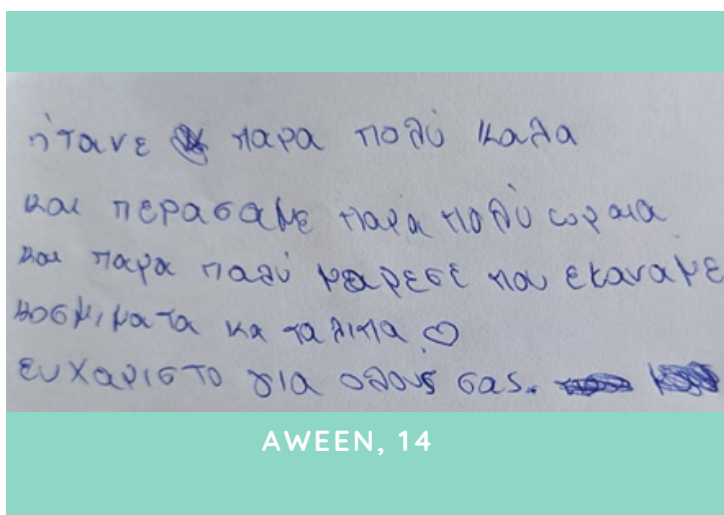 ήτανε παρα πολύ καλα
και περασαμε παρα πολύ ωραια
και παρα πολύ μαρεσε που εκαναμε
κοσμιματα κα τα λιπα ♡
ευχαριστο για ολους σας.
AWEEN, 14